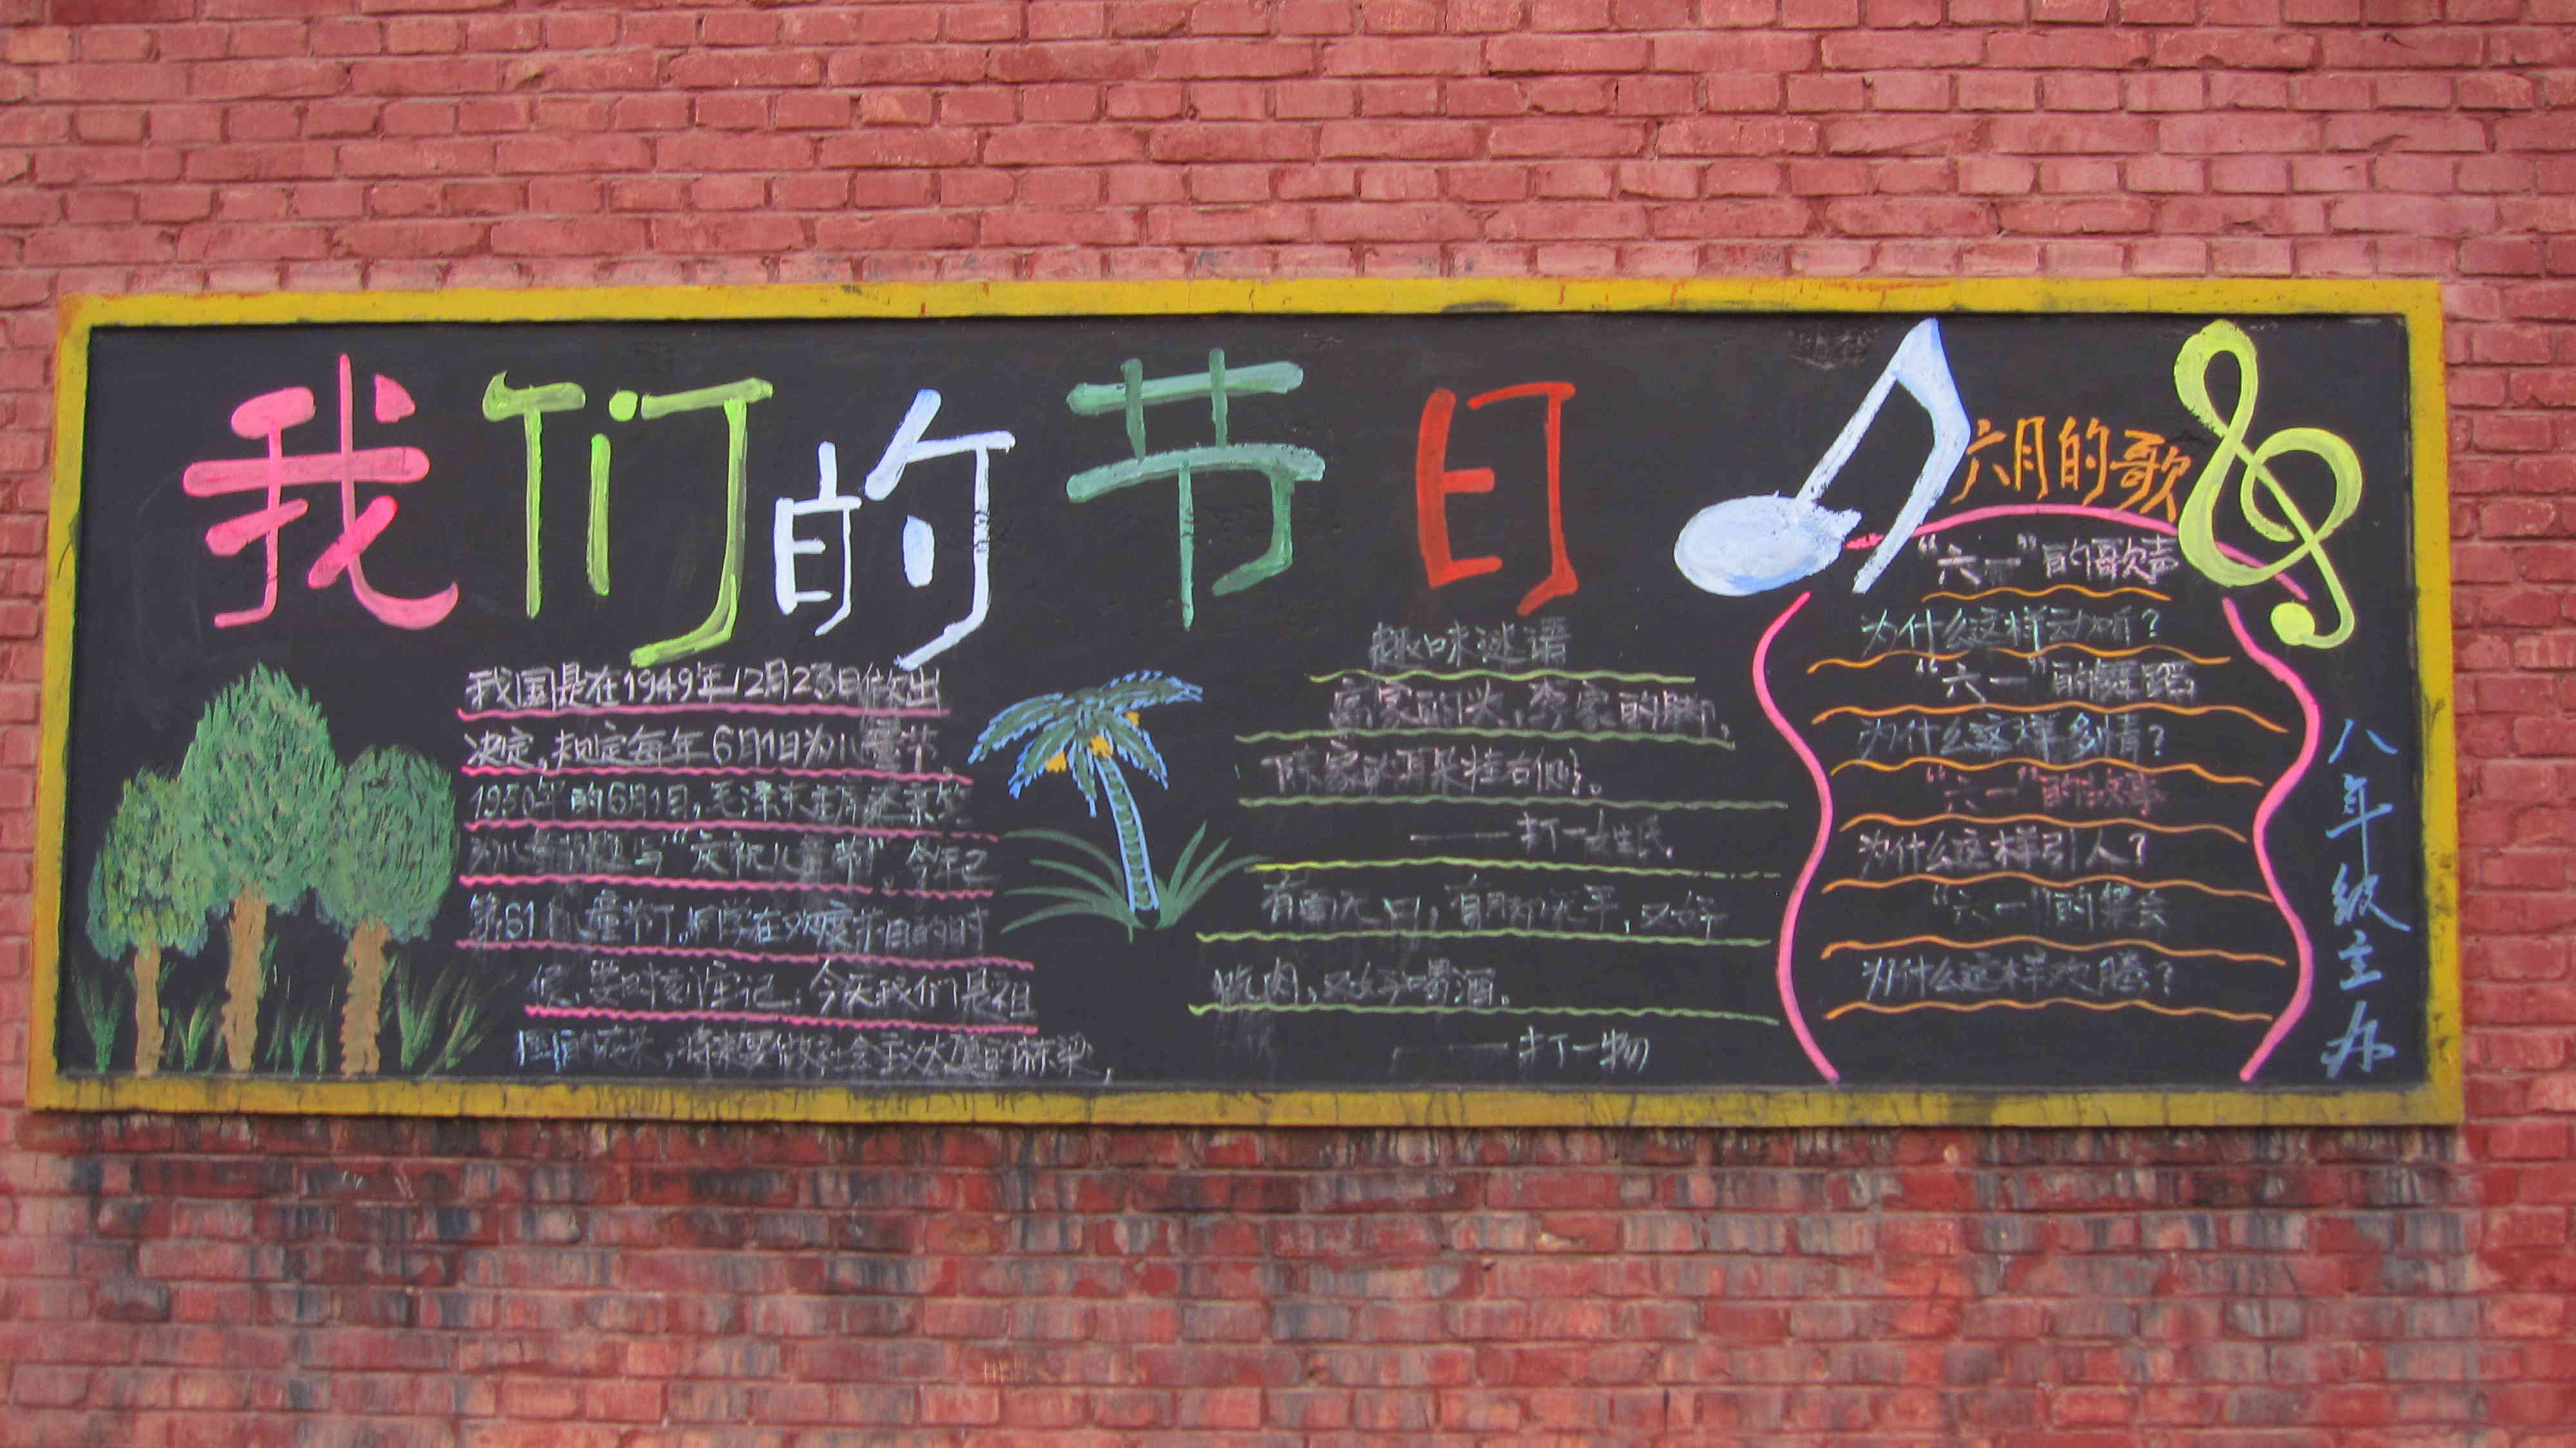 我们的节日
我国是在1949年12月23日做出
决定,规定每年6月1日为儿童节,
1950年的6月1日,毛泽东主席
"庆祝儿童节"。今年已
第61个儿童节了,同学在欢度节日的时
候,要时刻牢记:今天我们是祖
国的花朵,将来要做社会主义大厦的栋梁,
趣味谜语
高家的头,李家的脚,
陈家的耳朵挂右侧。
——打一姓氏
又好
吃肉,又好喝酒。
——打一物
六月的歌
"六一"的歌声
为什么这样动听?
"六一"的舞蹈
为什么这样多情?
"六一"的故事
为什么这样引人?
"六一"的集会
为什么这样欢腾?
八年级主办